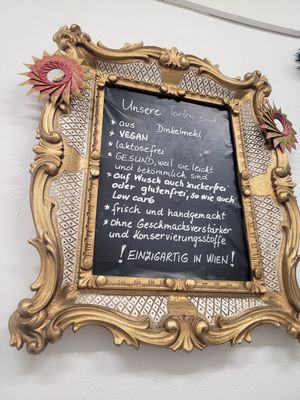 Unsere Torten sind
* aus Dinkelmehl
* VEGAN
* laktosefrei
* GESUND, weil sie leicht
und bekömmlich sind
* auf Wusch auch zuckerfrei
oder glutenfrei, so wie auch
Low carb
* frisch und handgemacht
* ohne Geschmacksverstärker
und Konservierungsstoffe
! EINZIGARTIG IN WIEN !